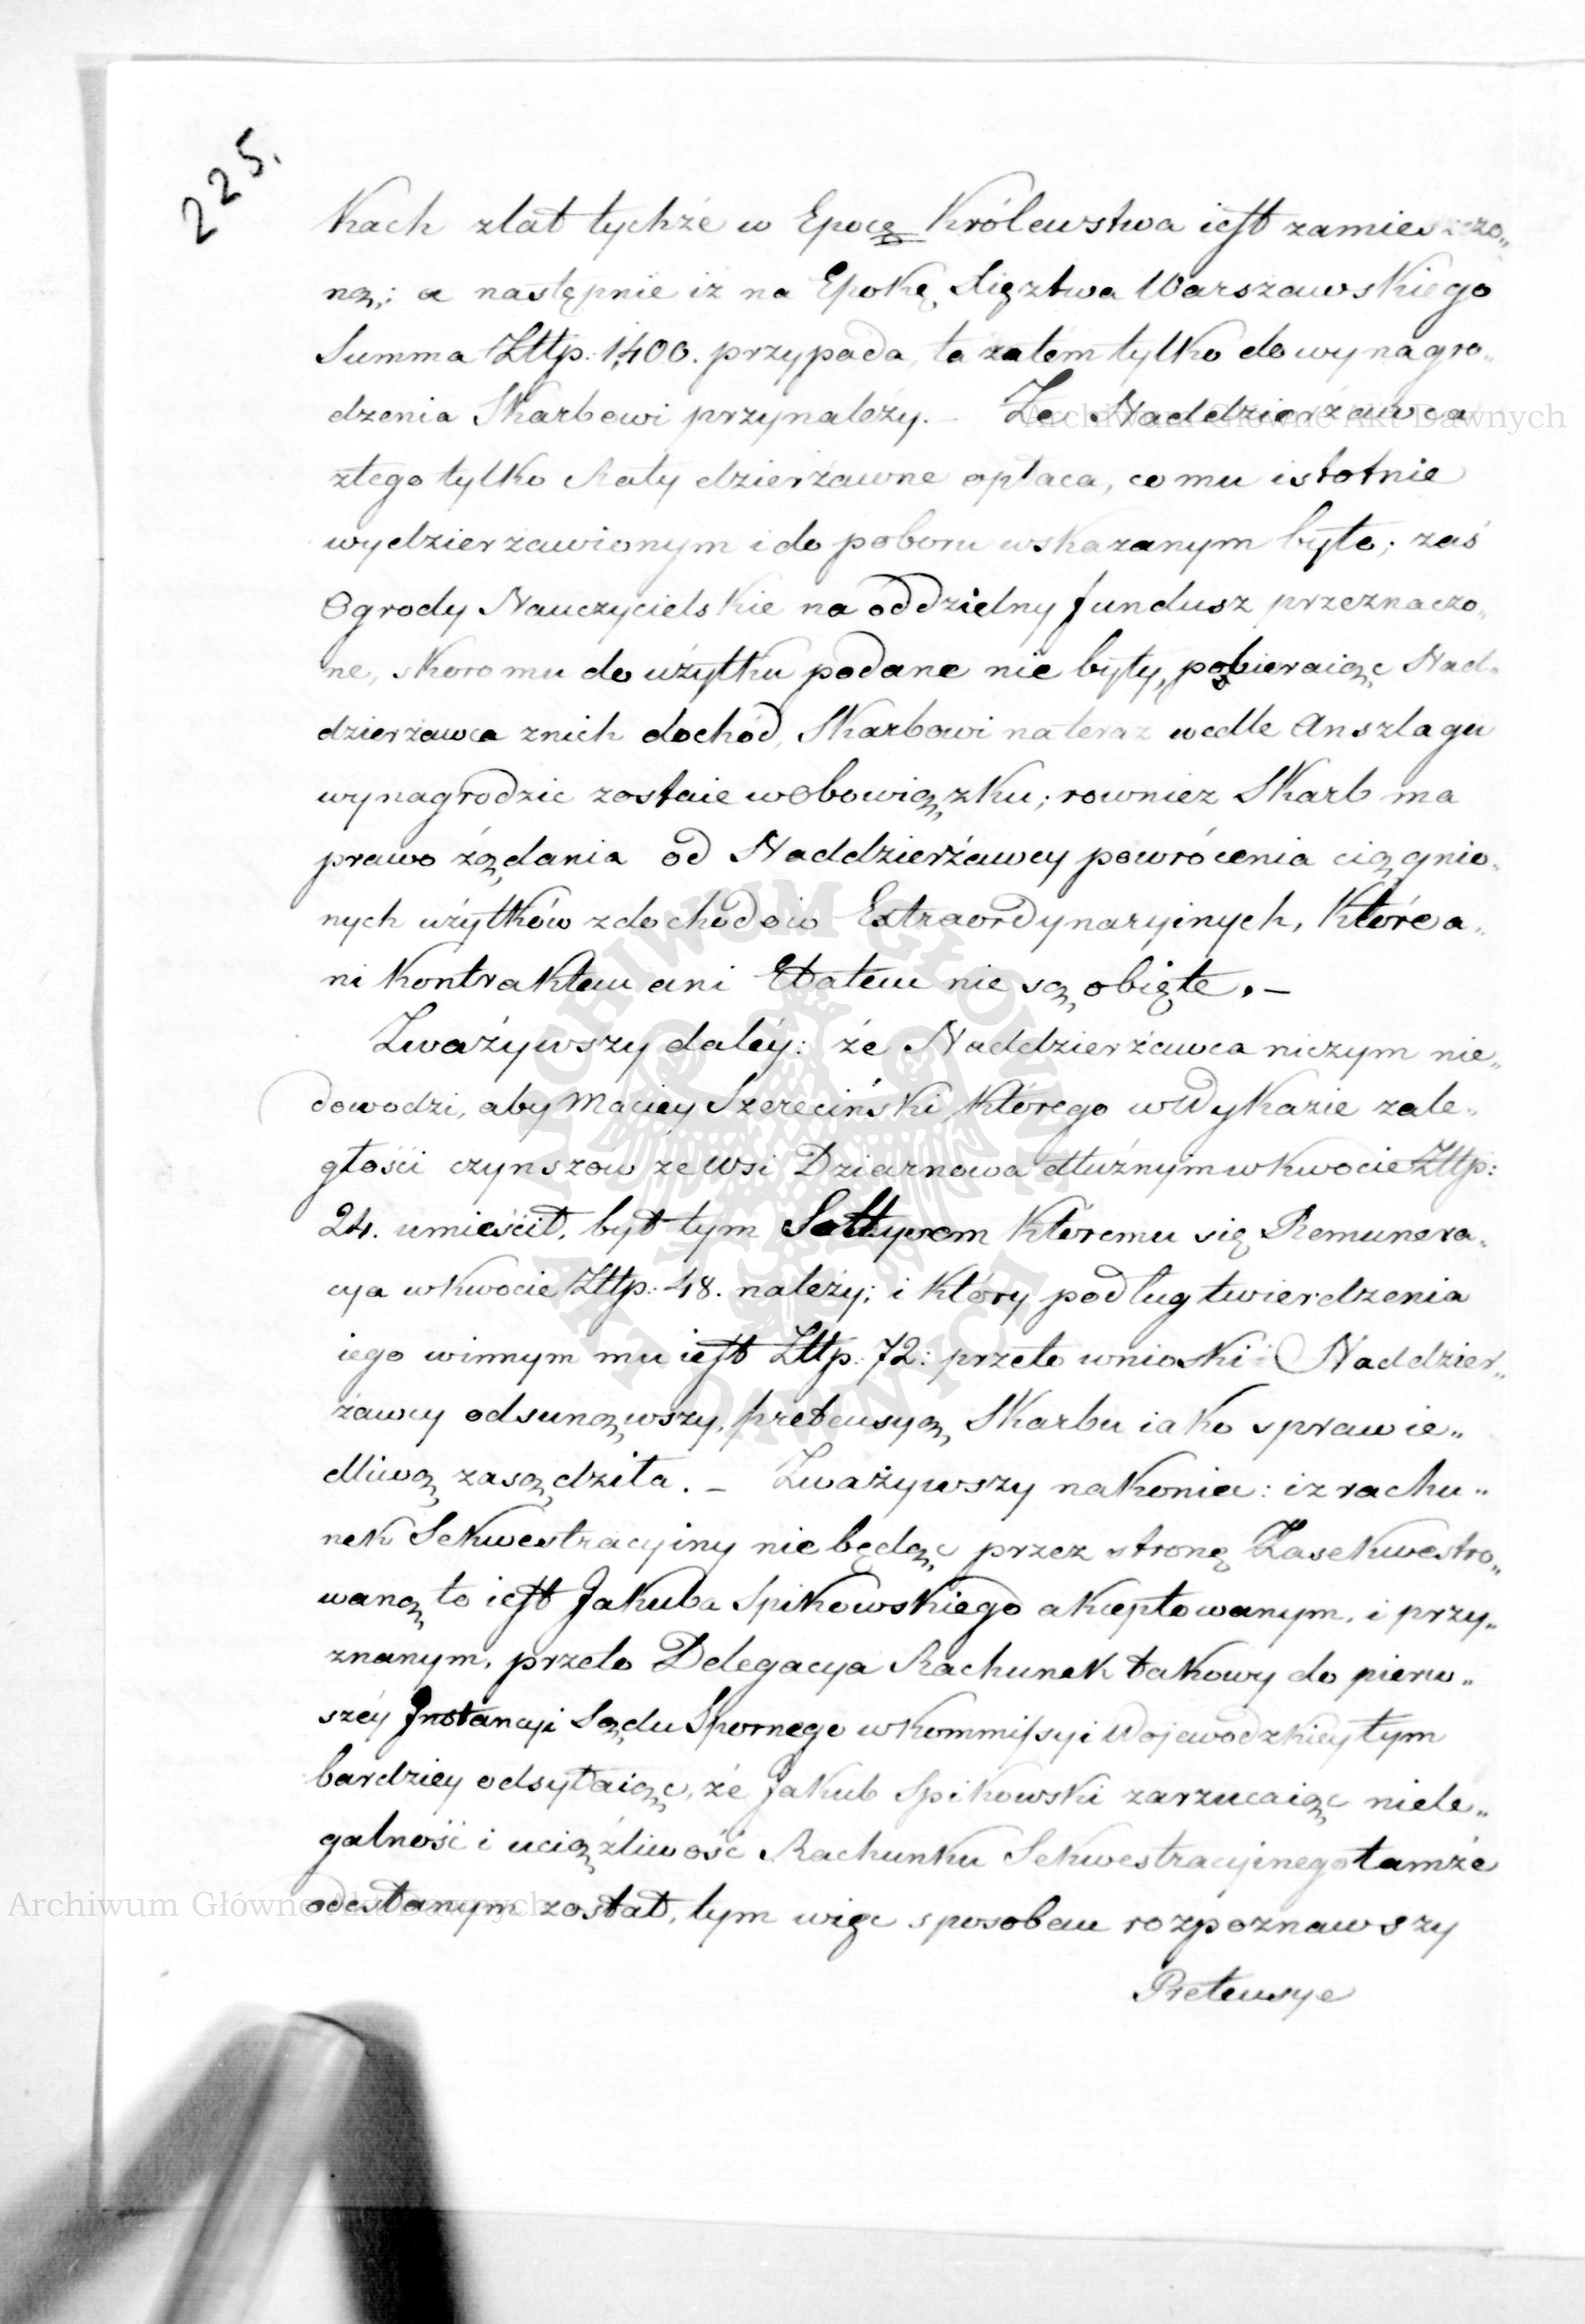 225.
kach zlat tychże w Epocę Królewstwa iest zamieszczo„
ną; a następnie iż na Epokę Xięztwa Warszawskiego
Summa Złłp: 1,400. przypada, ta zatem tylko do wynagro„
dzenia Skarbowi przynależy. – Że Naddzierżawca
ztego tylko Raty dzierżawne opłaca, co mu istotnie
wydzierżawionym i do poboru wskazanym było; zaś
Ogrody Nauczycielskie na oddzielny fundusz przeznaczo„
ne, skoro mu do użytku podane nie były, pobieraiąc Nad„
dzierżawca znich dochód, Skarbowi na teraz wedle Anszlagu
wynagrodzic zostaie wobowiązku; rownież Skarb ma
prawo żądania od Naddzierżawcy powrócenia ciągnio„
nych użytków zdochodów Extraordynaryinych, które a„
ni kontraktem ani Etatem nie są obięte. –
Zważywszy daléy: że Naddzierżawca niczym nie„
dowodzi, aby Maciey Szereciński, którego wWykazie zale„
głości czynszow ze Wsi Dziarnowa dłużnym wkwocie Złłp:
24. umieścił, był tym Sołtysem któremu się Remunera„
cya wkwocie Złłp: 48. należy; i który podług twierdzenia
iego winnym mu iest Złłp: 72: przeto wnioski Naddzier„
żawcy odsunąwszy, pretensyą Skarbu iako sprawie„
dliwą zasądziła. – Zważywszy nakoniec: iż rachu„
nek Sekwestracyiny nie będąc przez stronę Zasekwestro„
waną to iest Jakuba Spikowskiego akceptowanym, i przy„
znanym, przeto Delegacya Rachunek takowy do pierw„
széy Instancyi Sądu Spornego wkommissyi Wojewodzkiey tym
bardziey odsyłaiąc, że Jakub Spikowski zarzucaiąc niele„
galność i uciążliwość Rachunku Sekwestracyinego tamże
odesłanym został, tym więc sposobem rozpoznawszy
Pretensye
Archiwum Główne Akt Dawnych
Archiwum Główne Akt Dawnych
ARCHIWUM GŁÓWNE AKT DAWNYCH